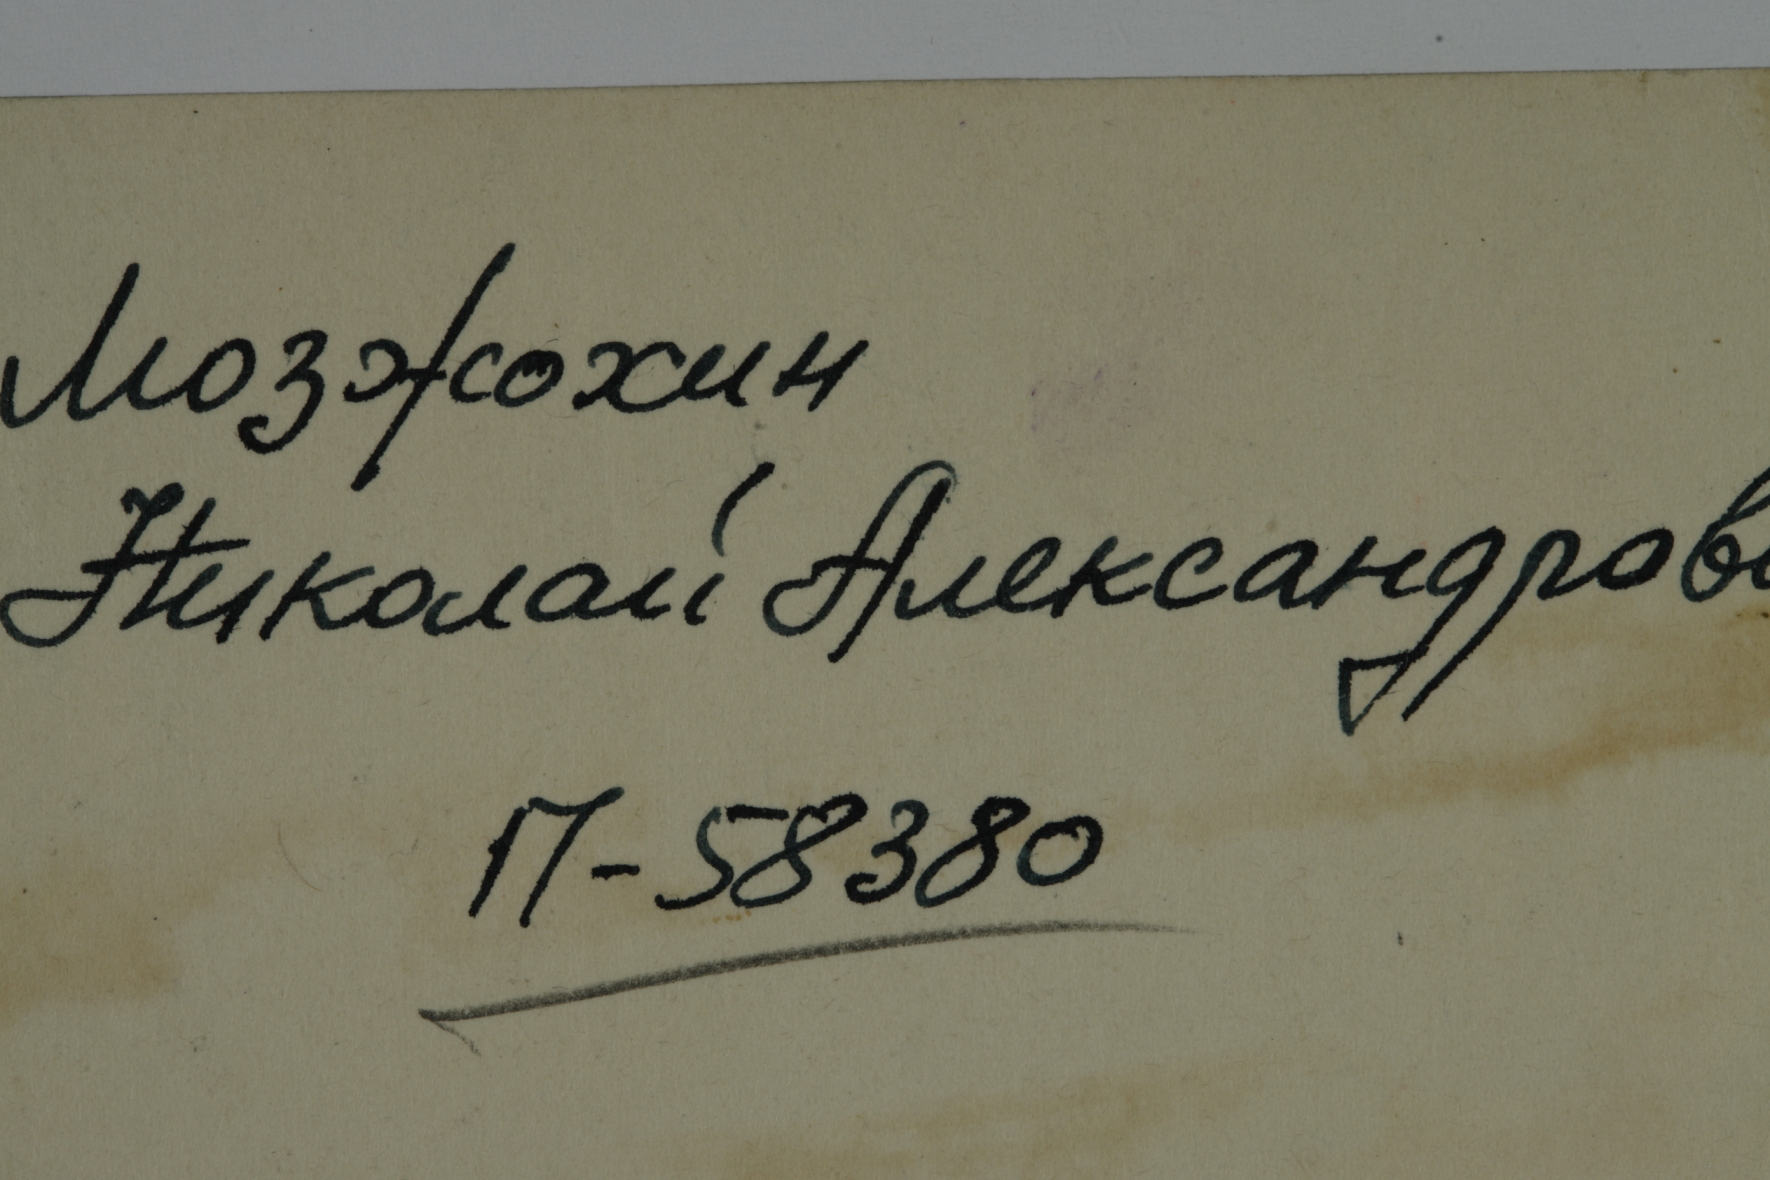 Мозжохин
Николай Александров
П-58380